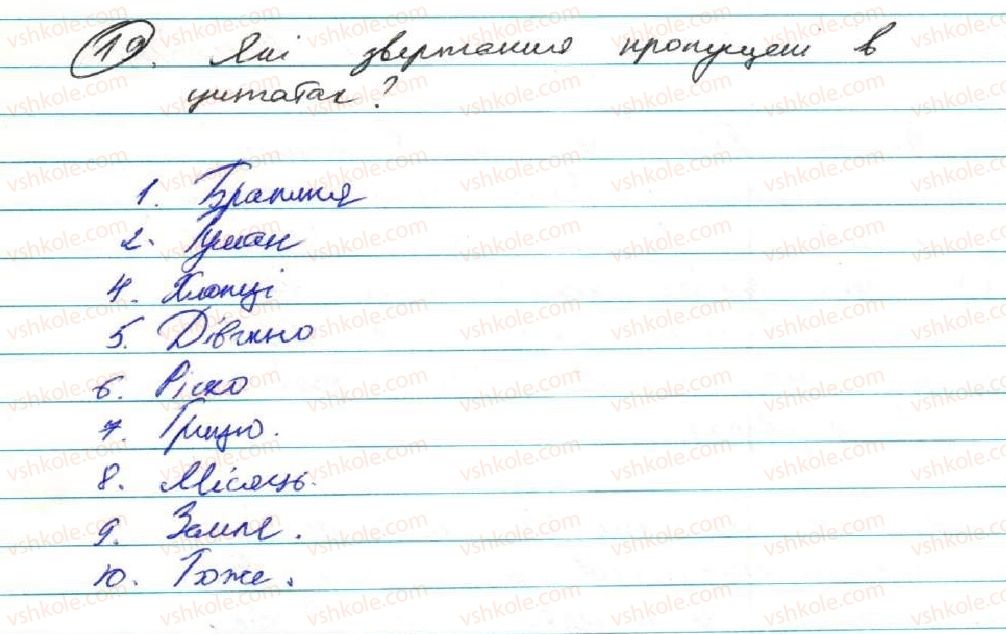 19. Які звертання пропущені в
цитатах?
1. Братиття
2. Туман
4. Хлопці
5. Дівчино
6. Ріско
7. Грицю.
8. Місяць.
9. Земле.
10. Боже.